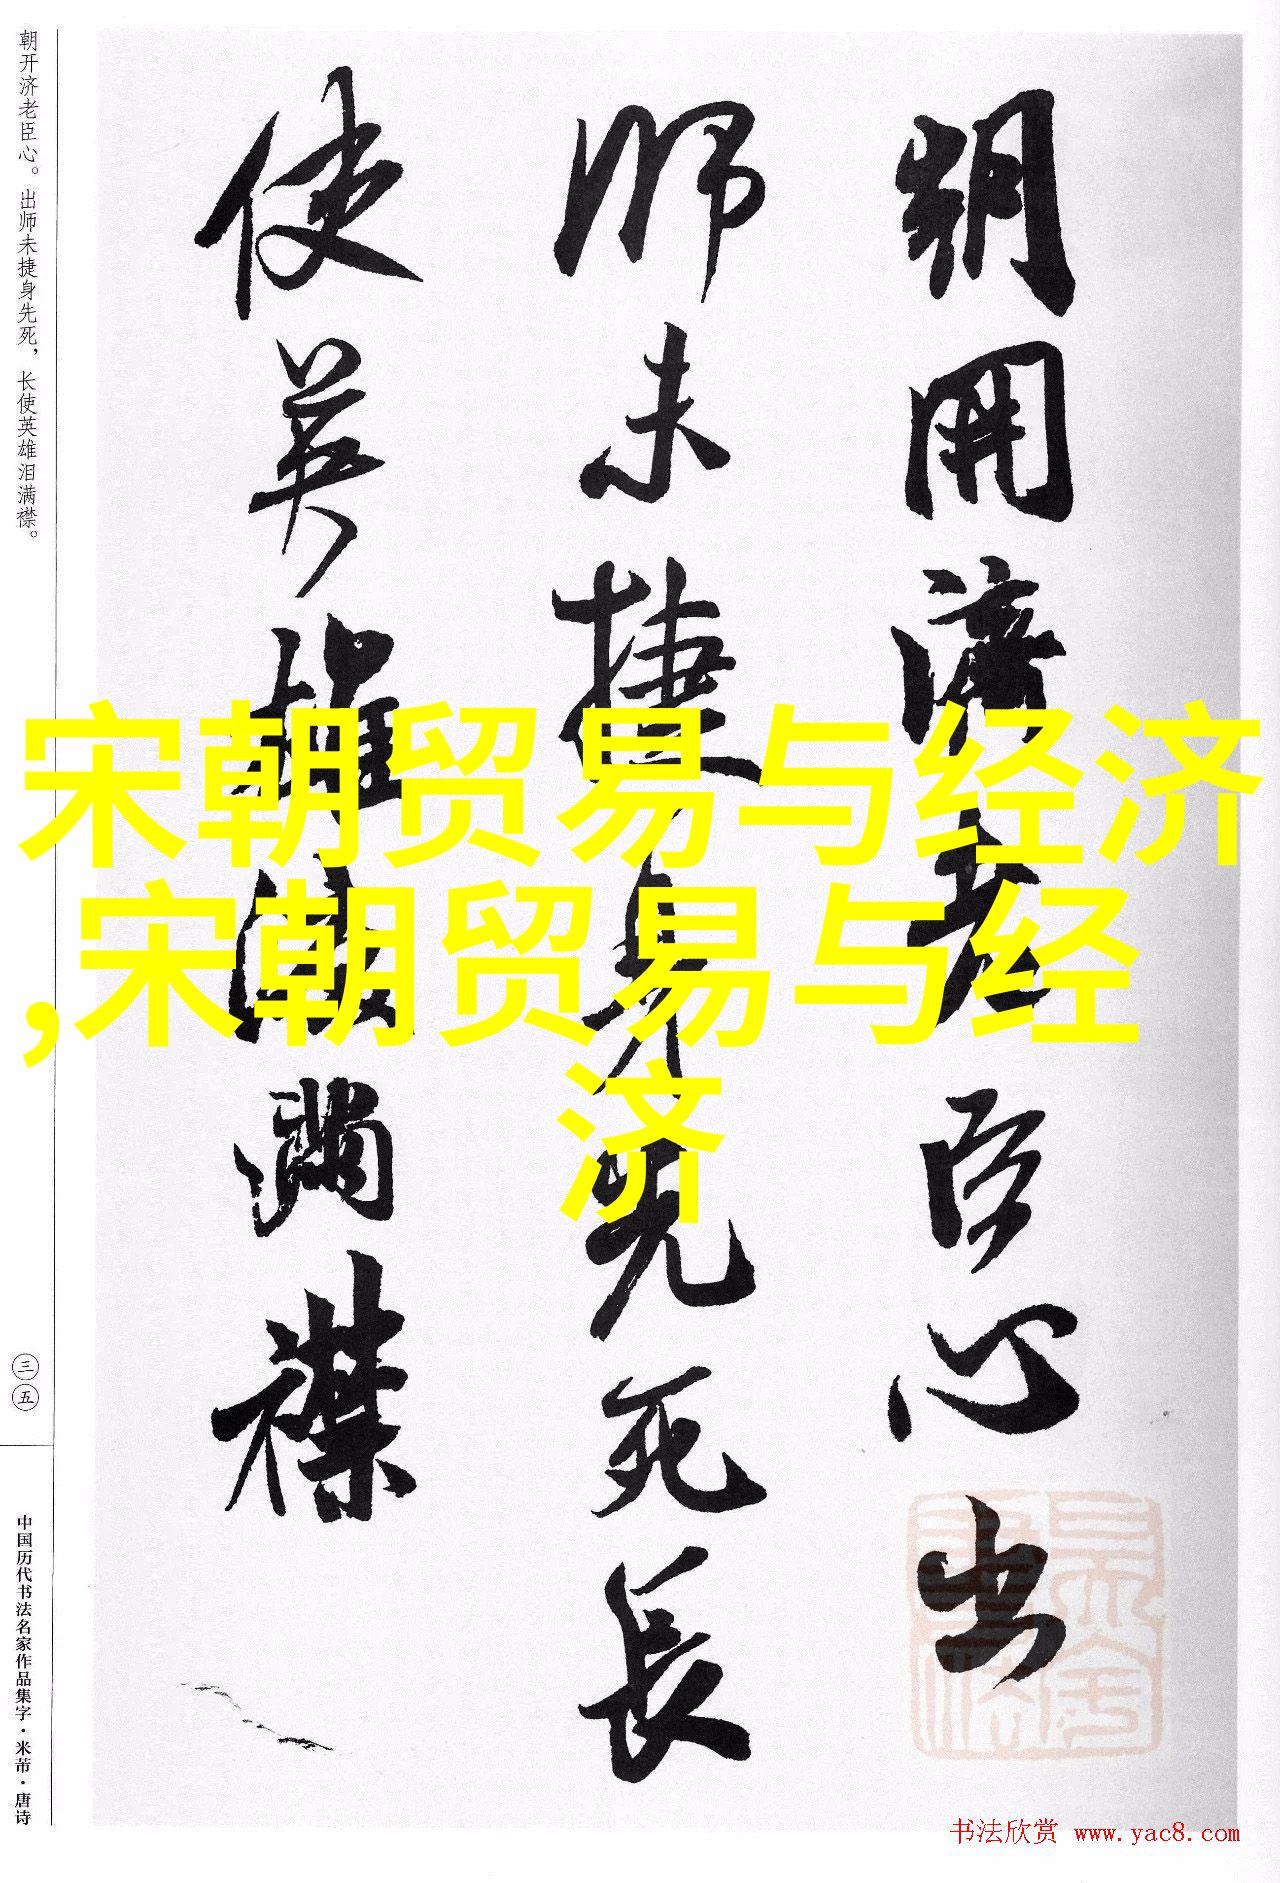 朝开济老臣心。出师未捷身先死，长使英雄泪满襟。
朝開濟老臣心出
师未捷身先死長
使英雄淚滿襟
宋朝贸易与经济
,宋朝贸易与经
济
三五
中国历代书法名家作品集字·米芾·唐诗
书法欣赏 www.yac8.com